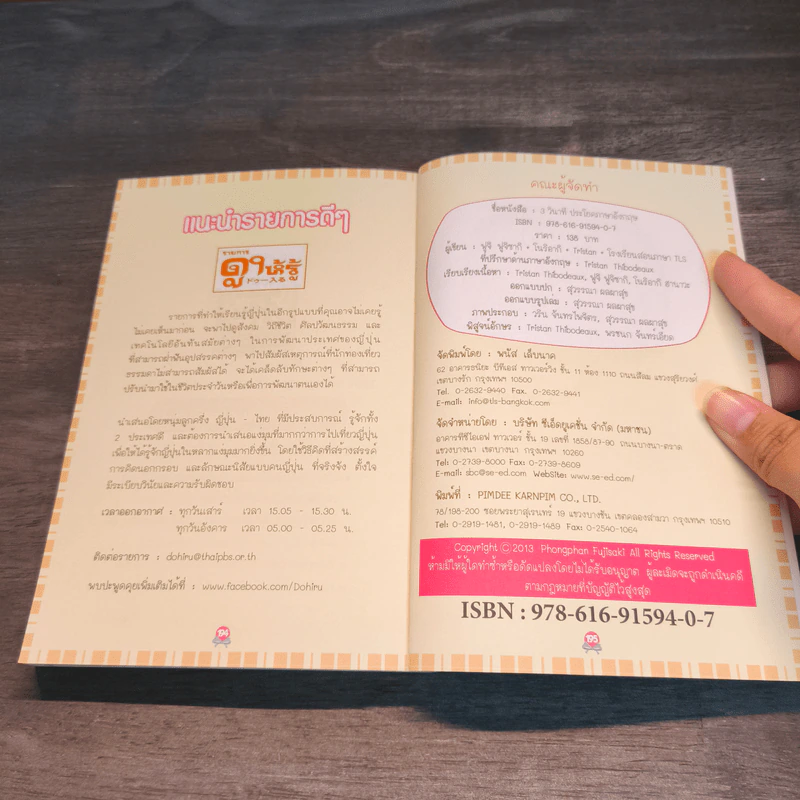 แนะนำรายการดีๆ
รายการ
ดูให้รู้
ドゥーハイルー
รายการที่ทำให้เรียนรู้ญี่ปุ่นในอีกรูปแบบที่คุณอาจไม่เคยรู้
ไม่เคยเห็นมาก่อน จะพาไปดูสังคม วิถีชีวิต ศิลปวัฒนธรรม และ
เทคโนโลยีอันทันสมัยต่างๆ ในการพัฒนาประเทศของญี่ปุ่น
ที่สามารถฝ่าฟันอุปสรรคต่างๆ พาไปสัมผัสเหตุการณ์ที่นักท่องเที่ยว
ธรรมดาไม่สามารถสัมผัสได้ จะได้เคล็ดลับทักษะต่างๆ ที่สามารถ
ปรับนำมาใช้ในชีวิตประจำวันหรือเพื่อการพัฒนาตนเองได้
นำเสนอโดยหนุ่มลูกครึ่ง ญี่ปุ่น - ไทย ที่มีประสบการณ์ รู้จักทั้ง
2 ประเทศดี และต้องการนำเสนอแง่มุมที่มากกว่าการไปเที่ยวญี่ปุ่น
เพื่อให้ได้รู้จักญี่ปุ่นในหลากแง่มุมมากยิ่งขึ้น โดยใช้วิธีคิดที่สร้างสรรค์
การคิดนอกกรอบ และลักษณะนิสัยแบบคนญี่ปุ่น ที่จริงจัง ตั้งใจ
มีระเบียบวินัยและความรับผิดชอบ
เวลาออกอากาศ : ทุกวันเสาร์ เวลา 15.05 - 15.30 น.
ทุกวันอังคาร เวลา 05.00 - 05.25 น.
ติดต่อรายการ : dohiru@thaipbs.or.th
พบปะพูดคุยเพิ่มเติมได้ที่ : www.facebook.com/Dohiru
194
คณะผู้จัดทำ
ชื่อหนังสือ : 3 วินาที ประโยคภาษาอังกฤษ
ISBN : 978-616-91594-0-7
ราคา : 138 บาท
ผู้เขียน : ฟูจิ ฟูจิซากิ + โนริอากิ + Tristan + โรงเรียนสอนภาษา TLS
ที่ปรึกษาด้านภาษาอังกฤษ : Tristan Thibodeaux
เรียบเรียงเนื้อหา : Tristan Thibodeaux, ฟูจิ ฟูจิซากิ, โนริอากิ ฮานาวะ
ออกแบบปก : สุวรรณา ผลผาสุข
ออกแบบรูปเล่ม : สุวรรณา ผลผาสุข
ภาพประกอบ : วริน จันทรไพจิตร, สุวรรณา ผลผาสุข
พิสูจน์อักษร : Tristan Thibodeaux, พรชนก จันทร์เอียด
จัดพิมพ์โดย : พนัส เล็บนาค
62 อาคารธนิยะ บีทีเอส ทาวเวอร์วิง ชั้น 11 ห้อง 1110 ถนนสีลม แขวงสุริยวงศ์
เขตบางรัก กรุงเทพฯ 10500
Tel. 0-2632-9440 Fax. 0-2632-9441
E-mail: info@tls-bangkok.com
จัดจำหน่ายโดย : บริษัท ซีเอ็ดยูเคชั่น จำกัด (มหาชน)
อาคารทีซีไอเอฟ ทาวเวอร์ ชั้น 19 เลขที่ 1858/87-90 ถนนบางนา-ตราด
แขวงบางนา เขตบางนา กรุงเทพฯ 10260
Tel: 0-2739-8000 Fax: 0-2739-8609
E-mail: sbc@se-ed.com WebSite: www.se-ed.com/
พิมพ์ที่ : PIMDEE KARNPIM CO., LTD.
78/198-200 ซอยพระยาสุเรนทร์ 19 แขวงบางชัน เขตคลองสามวา กรุงเทพฯ 10510
Tel: 0-2919-1481, 0-2919-1489 Fax: 0-2540-1064
Copyright © 2013 Phongphan Fujisaki All Rights Reserved
ห้ามมิให้ผู้ใดทำซ้ำหรือดัดแปลงโดยไม่ได้รับอนุญาต ผู้ละเมิดจะถูกดำเนินคดี
ตามกฎหมายที่บัญญัติไว้สูงสุด
ISBN : 978-616-91594-0-7
195